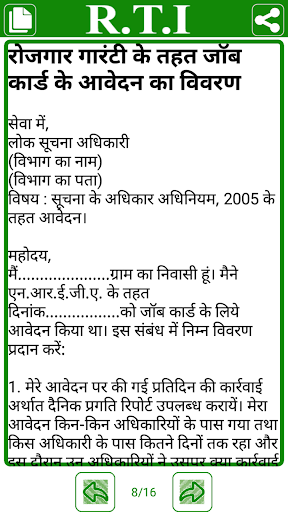 R.T.I
रोजगार गारंटी के तहत जॉब
कार्ड के आवेदन का विवरण
सेवा में,
लोक सूचना अधिकारी
(विभाग का नाम)
(विभाग का पता)
विषय : सूचना के अधिकार अधिनियम, 2005 के
तहत आवेदन।
महोदय,
मैं......................ग्राम का निवासी हूं। मैने
एन.आर.ई.जी.ए. के तहत
दिनांक..................को जॉब कार्ड के लिये
आवेदन किया था। इस संबंध में निम्न विवरण
प्रदान करें:
1. मेरे आवेदन पर की गई प्रतिदिन की कार्रवाई
अर्थात दैनिक प्रगति रिपोर्ट उपलब्ध करायें। मेरा
आवेदन किन-किन अधिकारियों के पास गया तथा
किस अधिकारी के पास कितने दिनों तक रहा और
इस दौरान उन अधिकारियों ने उसपर क्या कार्रवाई
8/16